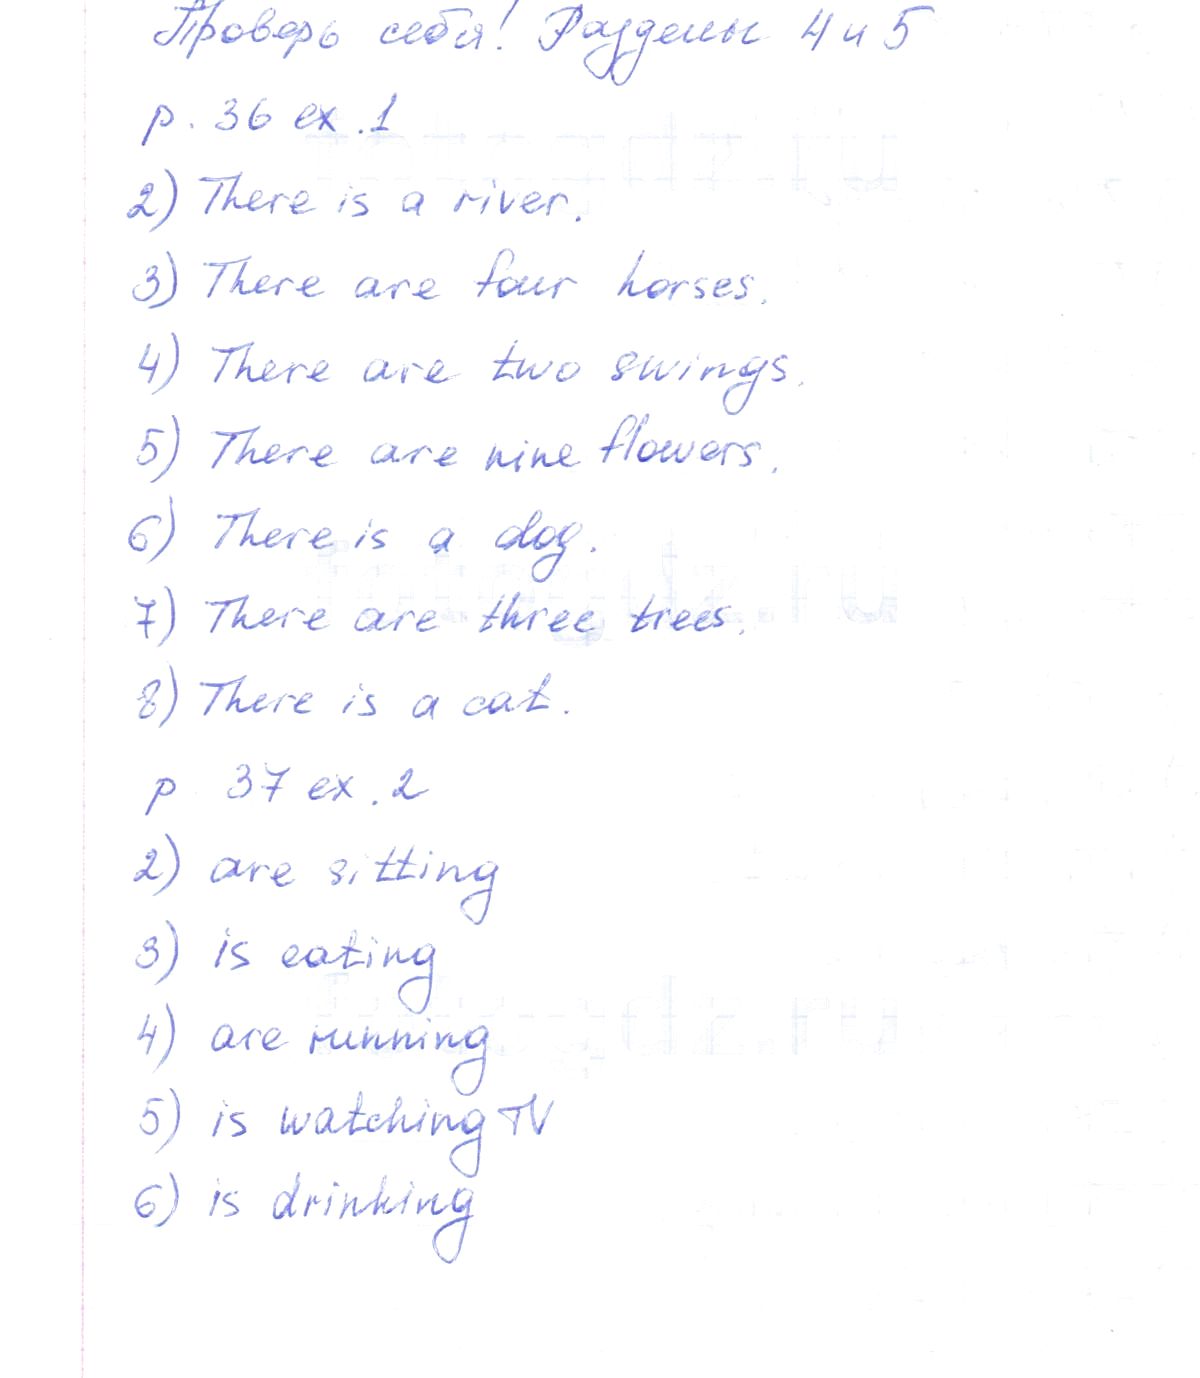 Проверь себя! Разделы 4 и 5
p. 36 ex. 1
2) There is a river.
3) There are four horses.
4) There are two swings.
5) There are nine flowers.
6) There is a dog.
7) There are three trees.
8) There is a cat.
p 37 ex. 2
2) are sitting
3) is eating
4) are running
5) is watching TV
6) is drinking